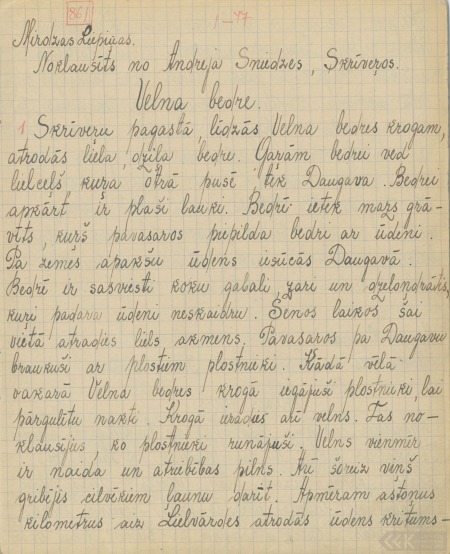 861
1-47
Mirdzas Liepiņas.
Noklausīts no Andreja Sniedzes, Skrīveŗos.
Velna bedre.
1 Skrīveŗu pagastā, līdzās Velna bedres krogam,
atrodās liela, dziļa bedre. Garām bedrei ved
lielceļš, kuŗa otrā pusē tek Daugava. Bedrei
apkārt ir plaši lauki. Bedrē ietek mazs grā-
vīts, kuŗš pavasaros piepilda bedri ar ūdeni.
Pa zemes apakšu ūdens iesūcās Daugavā.
Bedrē ir sasviesti koku gabali, zari un dzelondrātis,
kuŗi padara ūdeni neskaidru. Senos laikos šai
vietā atradies liels akmens. Pavasaros pa Daugavu
braukuši ar plostiem plostnieki. Kādā vēlā
vakarā Velna bedres krogā iegājuši plostnieki, lai
pārgulētu nakti. Krogā ieradies arī velns. Tas no-
klausījies, ko plostnieki runājuši. Velns vienmēr
ir naida un atriebības pilns. Arī šoreiz viņš
gribējis cilvēkiem ļaunu darīt. Apmēram astoņus
kilometrus aiz Lielvārdes atrodās ūdens kritums-